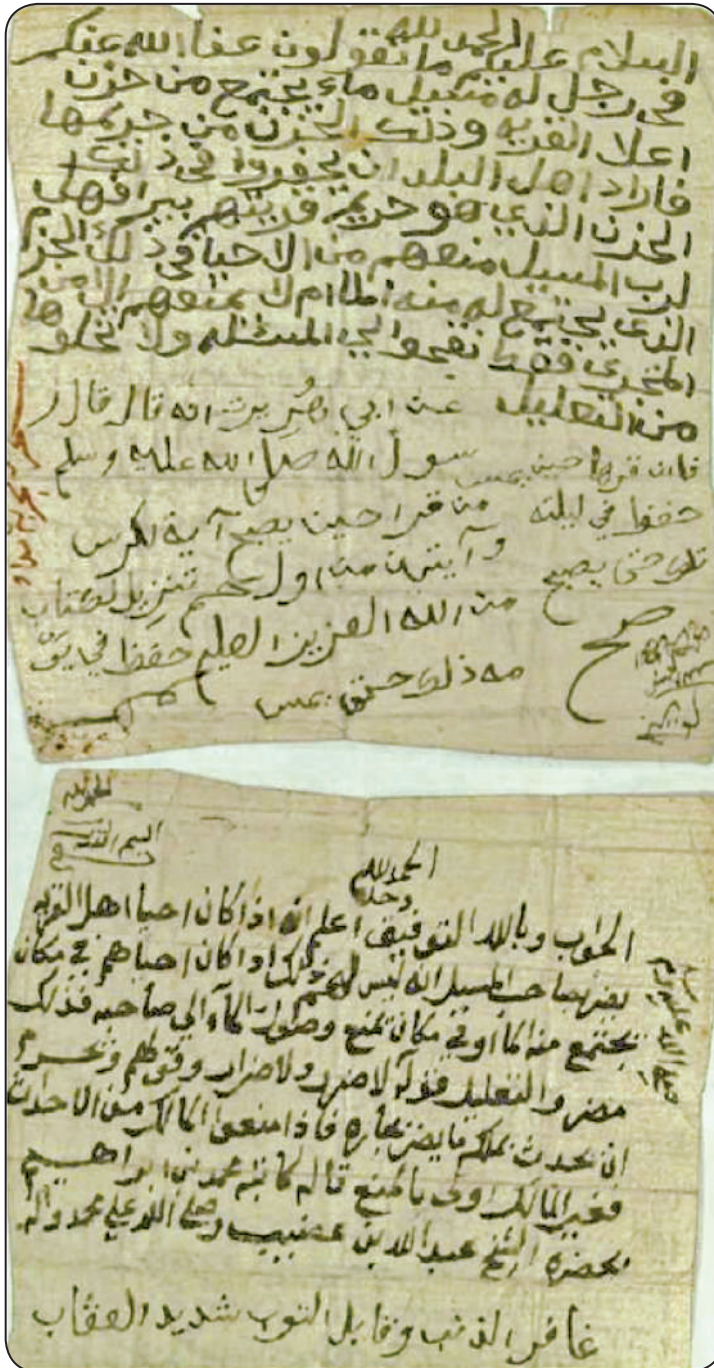 الحمد لله
السلام عليكم ما تقولون عفا الله عنكم
في رجل له مسيل ماء يجتمع من حزن
اعلا القريه وذلك الحزن من حريمها
فاراد اهل البلد ان يحفروا في ذلك
الحزن الذي هو حريم قريتهم بير افهل
لرب المسيل منعهم من الاحيا في ذلك الحز
الذي يجتمع له منه الما ام لا يمنعهم الا من
المجرى فقط نفحوا لي المسئله ولا تخلوها
من التعليل
عن ابي هريرة انه قال قال ر
سول الله صلى الله عليه وسلم
من قرا حين يصبح آية الكرسي
وآيتين من اول حم تنزيل الكتاب
من الله العزيز العليم حفظ في يو
مه ذلك حتى يمسي
فان قرها حين يمسي
حفظ في ليلته
تلك حتى يصبح
صح
الحمد لله
وحده
الجواب وبالله التوفيق اعلم انه اذا كان احيا اهل القريه
يضر بصاحب المسيل انه ليس لهم ذلك اذا كان احياهم في مكان
يجتمع منه الما او في مكان يمنع وصول الماء الي صاحبه فذلك
مضر والتعليل قوله لا ضرر ولا ضرار وقولهم ويحرم
ان يحدث بملكه ما يضر بجاره فاذا منعوا المالك من الاحداث
فغير المالك اولى بالمنع قاله كاتبه محمد بن ابراهيم
بحضرة الشيخ عبد الله بن عضيب وصلى الله علي محمد وآله
صلى الله عليه وسلم
غافر الذنب وقابل التوب شديد العقاب